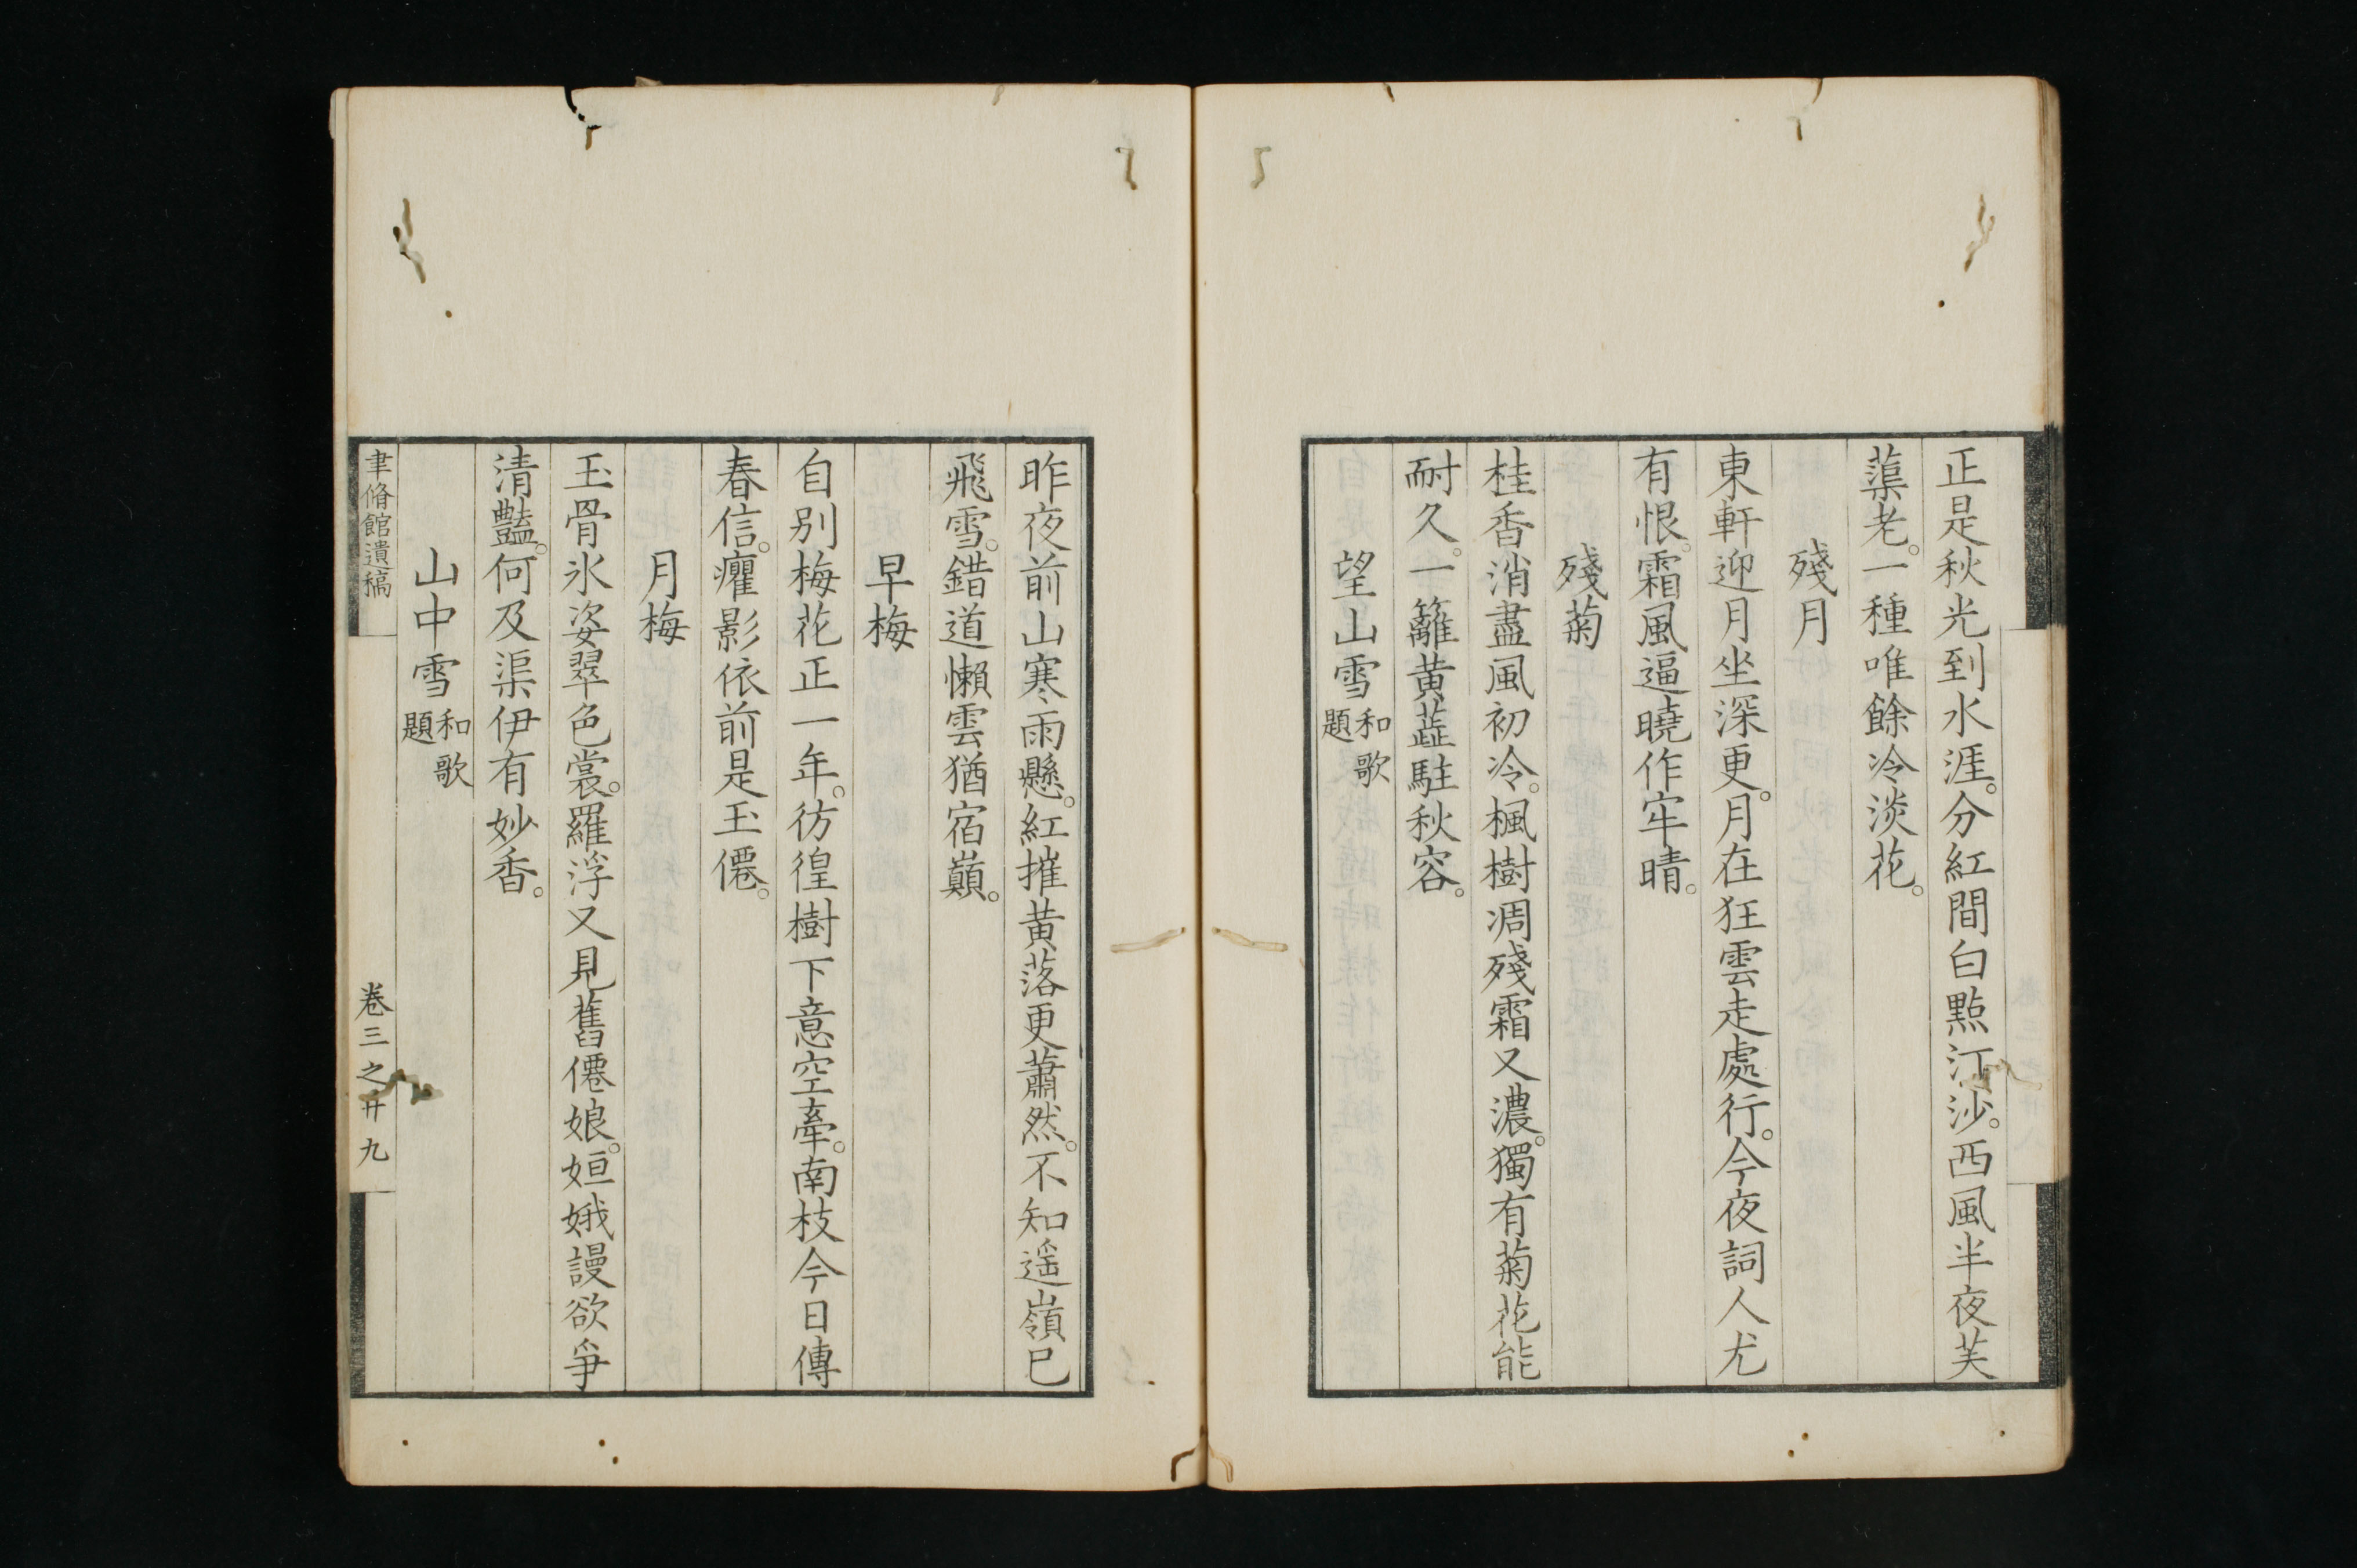 正是秋光到水涯。分紅間白點汀沙。西風半夜芙
蕖老。一種唯餘冷淡花。
殘月
東軒迎月坐深更。月在狂雲走處行。今夜詞人尤
有恨。霜風逼曉作牢晴。
殘菊
桂香消盡風初冷。楓樹凋殘霜又濃。獨有菊花能
耐久。一籬黄蘂駐秋容。
望山雪 和歌題
昨夜前山寒雨懸。紅摧黄落更蕭然。不知遥嶺已
飛雪。錯道懶雲猶宿巔。
早梅
自别梅花正一年。彷徨樹下意空牽。南枝今日傳
春信。癯影依前是玉僊。
月梅
玉骨氷姿翠色裳。羅浮又見舊僊娘。姮娥謾欲爭
清豔。何及渠伊有妙香。
山中雪 和歌題
聿脩館遺稿 卷三之廿九